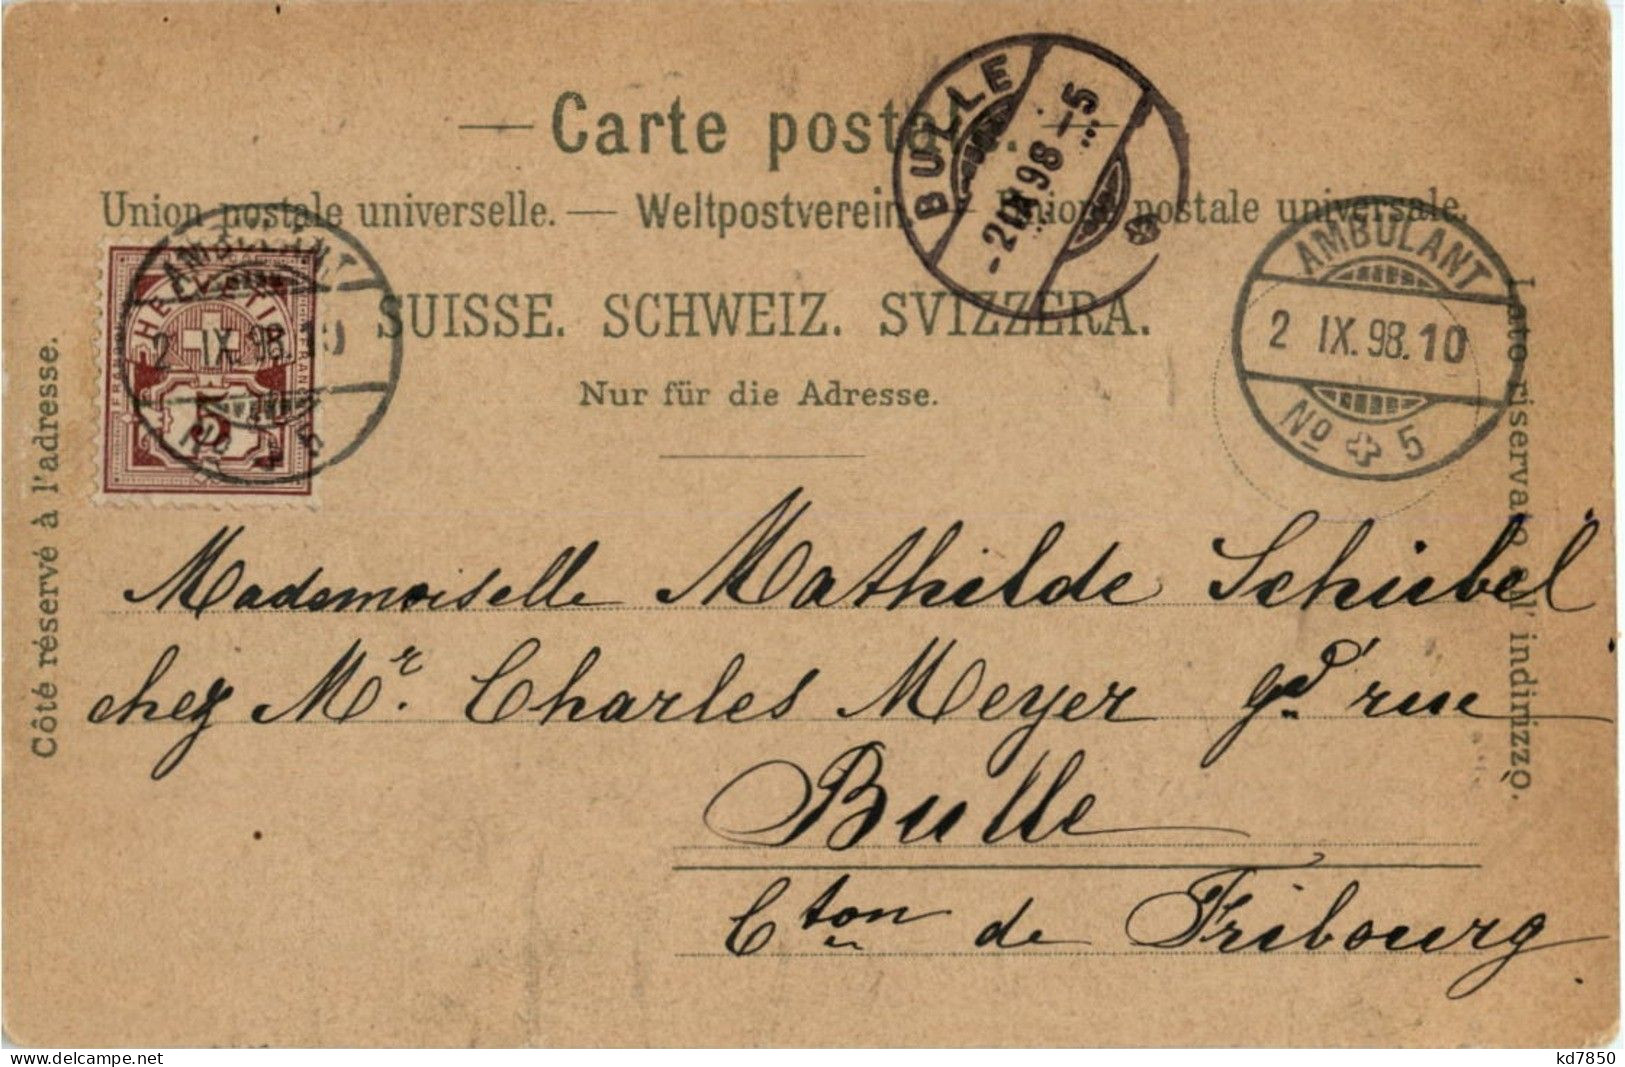 Carte postale.
Union postale universelle. — Weltpostverein. — Unione postale universale.
SUISSE. SCHWEIZ. SVIZZERA.
Nur für die Adresse.
Côté réservé à l'adresse.
Lato riservato all' indirizzo.
BULLE
-2 IX 98 -5
AMBULANT
2 IX. 98. 10
No 5
AMBULANT
2 IX. 98. 10
No 5
HELVETIA
FRANCO
FRANCO
5
Mademoiselle Mathilde Schibel
chez Mr. Charles Meyer gd rue
Bulle
Cton de Fribourg
kd7850